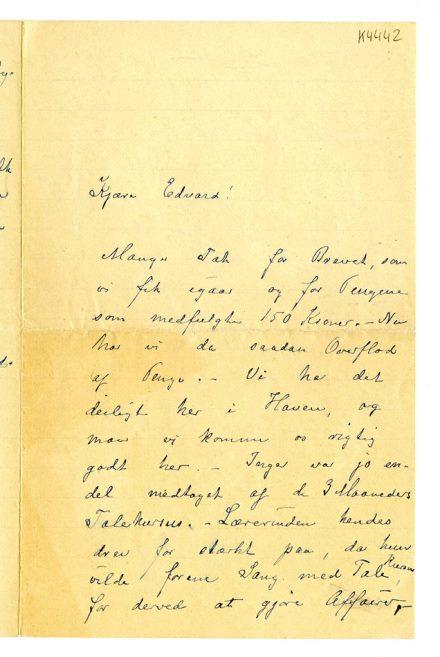 K4442
Kjære Edvard!
Mange Tak for Brevet, som
vi fik igaar og for Pengene
som medfulgte 150 Kroner. – Nu
har vi da saadan Overflod
af Penge. – Vi har det
deiligt her i Haven, og
maa vi komme os rigtig
godt her. – Inger var jo en-
del medtaget af de 3 Maaneders
Talekursus. – Lærerinden hendes
drev for stærkt paa, da hun
vilde forene Sang med Tale,
for derved at gjøre Affære, –